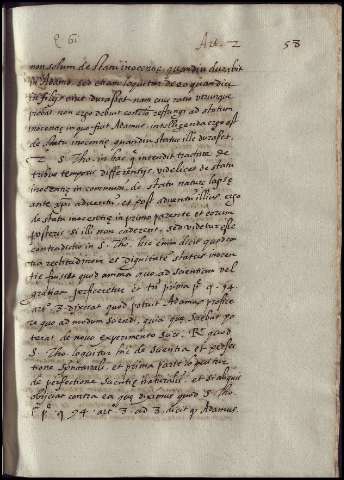 q 61 Art. 2 53
non solum de statu inocentię, quandiu durabit
in Adamo, sed etiam loquitur de eo quandiu
in filijs eius durasset nam eius ratio utrunque
probat non ergo debet restringi ad statum
inocentię in quo fuit Adamus, intelligenda ergo est
de statu inocentię quandiu status ille durasset,
2. S. Tho. in hac q. intendit tractare de
tribus temporis differentijs, videlicet de statu
inocentię in communi, de statu naturę lapsę
ante xpi adventum, et post adventum illius, ergo
de statu inocentię in primo parente et eorum
posteris si illi non caderent. sed videtur esse
contradictio in S. Tho. hic enim dicit quod
rectitudinem et dignitatē status inocen-
tię fuisse quod anima quo ad scientiam vel
gratiam perficeretur et in prima p. q. 94.
art. 3. dixerat quod potuit Adamus profice-
re quo ad modum sciendi, quia quę sciebat po-
terat de novo experimento scire. R. quod
S. Tho. loquitur hic de scientia et perfec-
tione spirituali, et prima parte loquitur
de perfectione scientię naturalis, et si aliquis
obijciat contra ea quę diximus quod S. Tho.
p. p. q. 94. art. 3. ad 3. dicit q. Adamus.